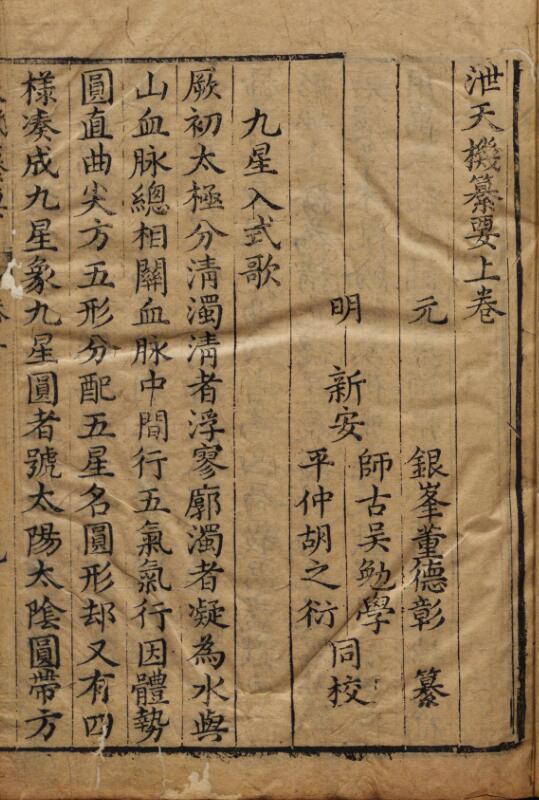 泄天機纂要上卷
元 銀峯董德彰 纂
明 新安 師古吳勉學 同校
平仲胡之衍
九星入式歌
厥初太極分清濁清者浮寥廓濁者凝為水與
山血脉總相關血脉中間行五氣氣行因體勢
圓直曲尖方五形分配五星名圓形却又有四
樣凑成九星象九星圓者號太陽太陰圓帶方